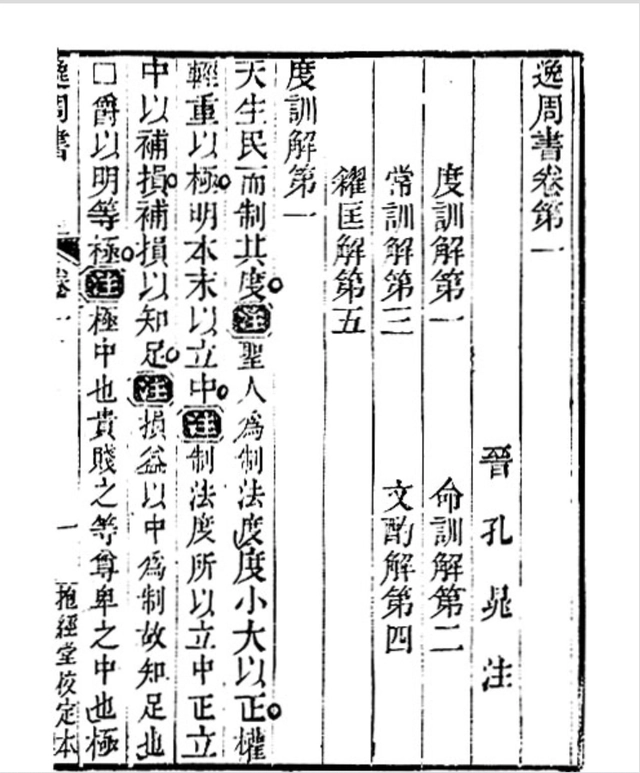 逸周書卷第一
晉孔晁注
度訓解第一 命訓解第二
常訓解第三 文酌解第四
糴匡解第五
度訓解第一
天生民而制其度。注聖人爲制法度度小大以正。權
輕重以極。明本末以立中。注制法度所以立中正立
中以補損。補損以知足。注損益以中爲制故知足也
□爵以明等極。注極中也貴賤之等尊卑之中也極
逸周書 卷一 一 抱經堂校定本